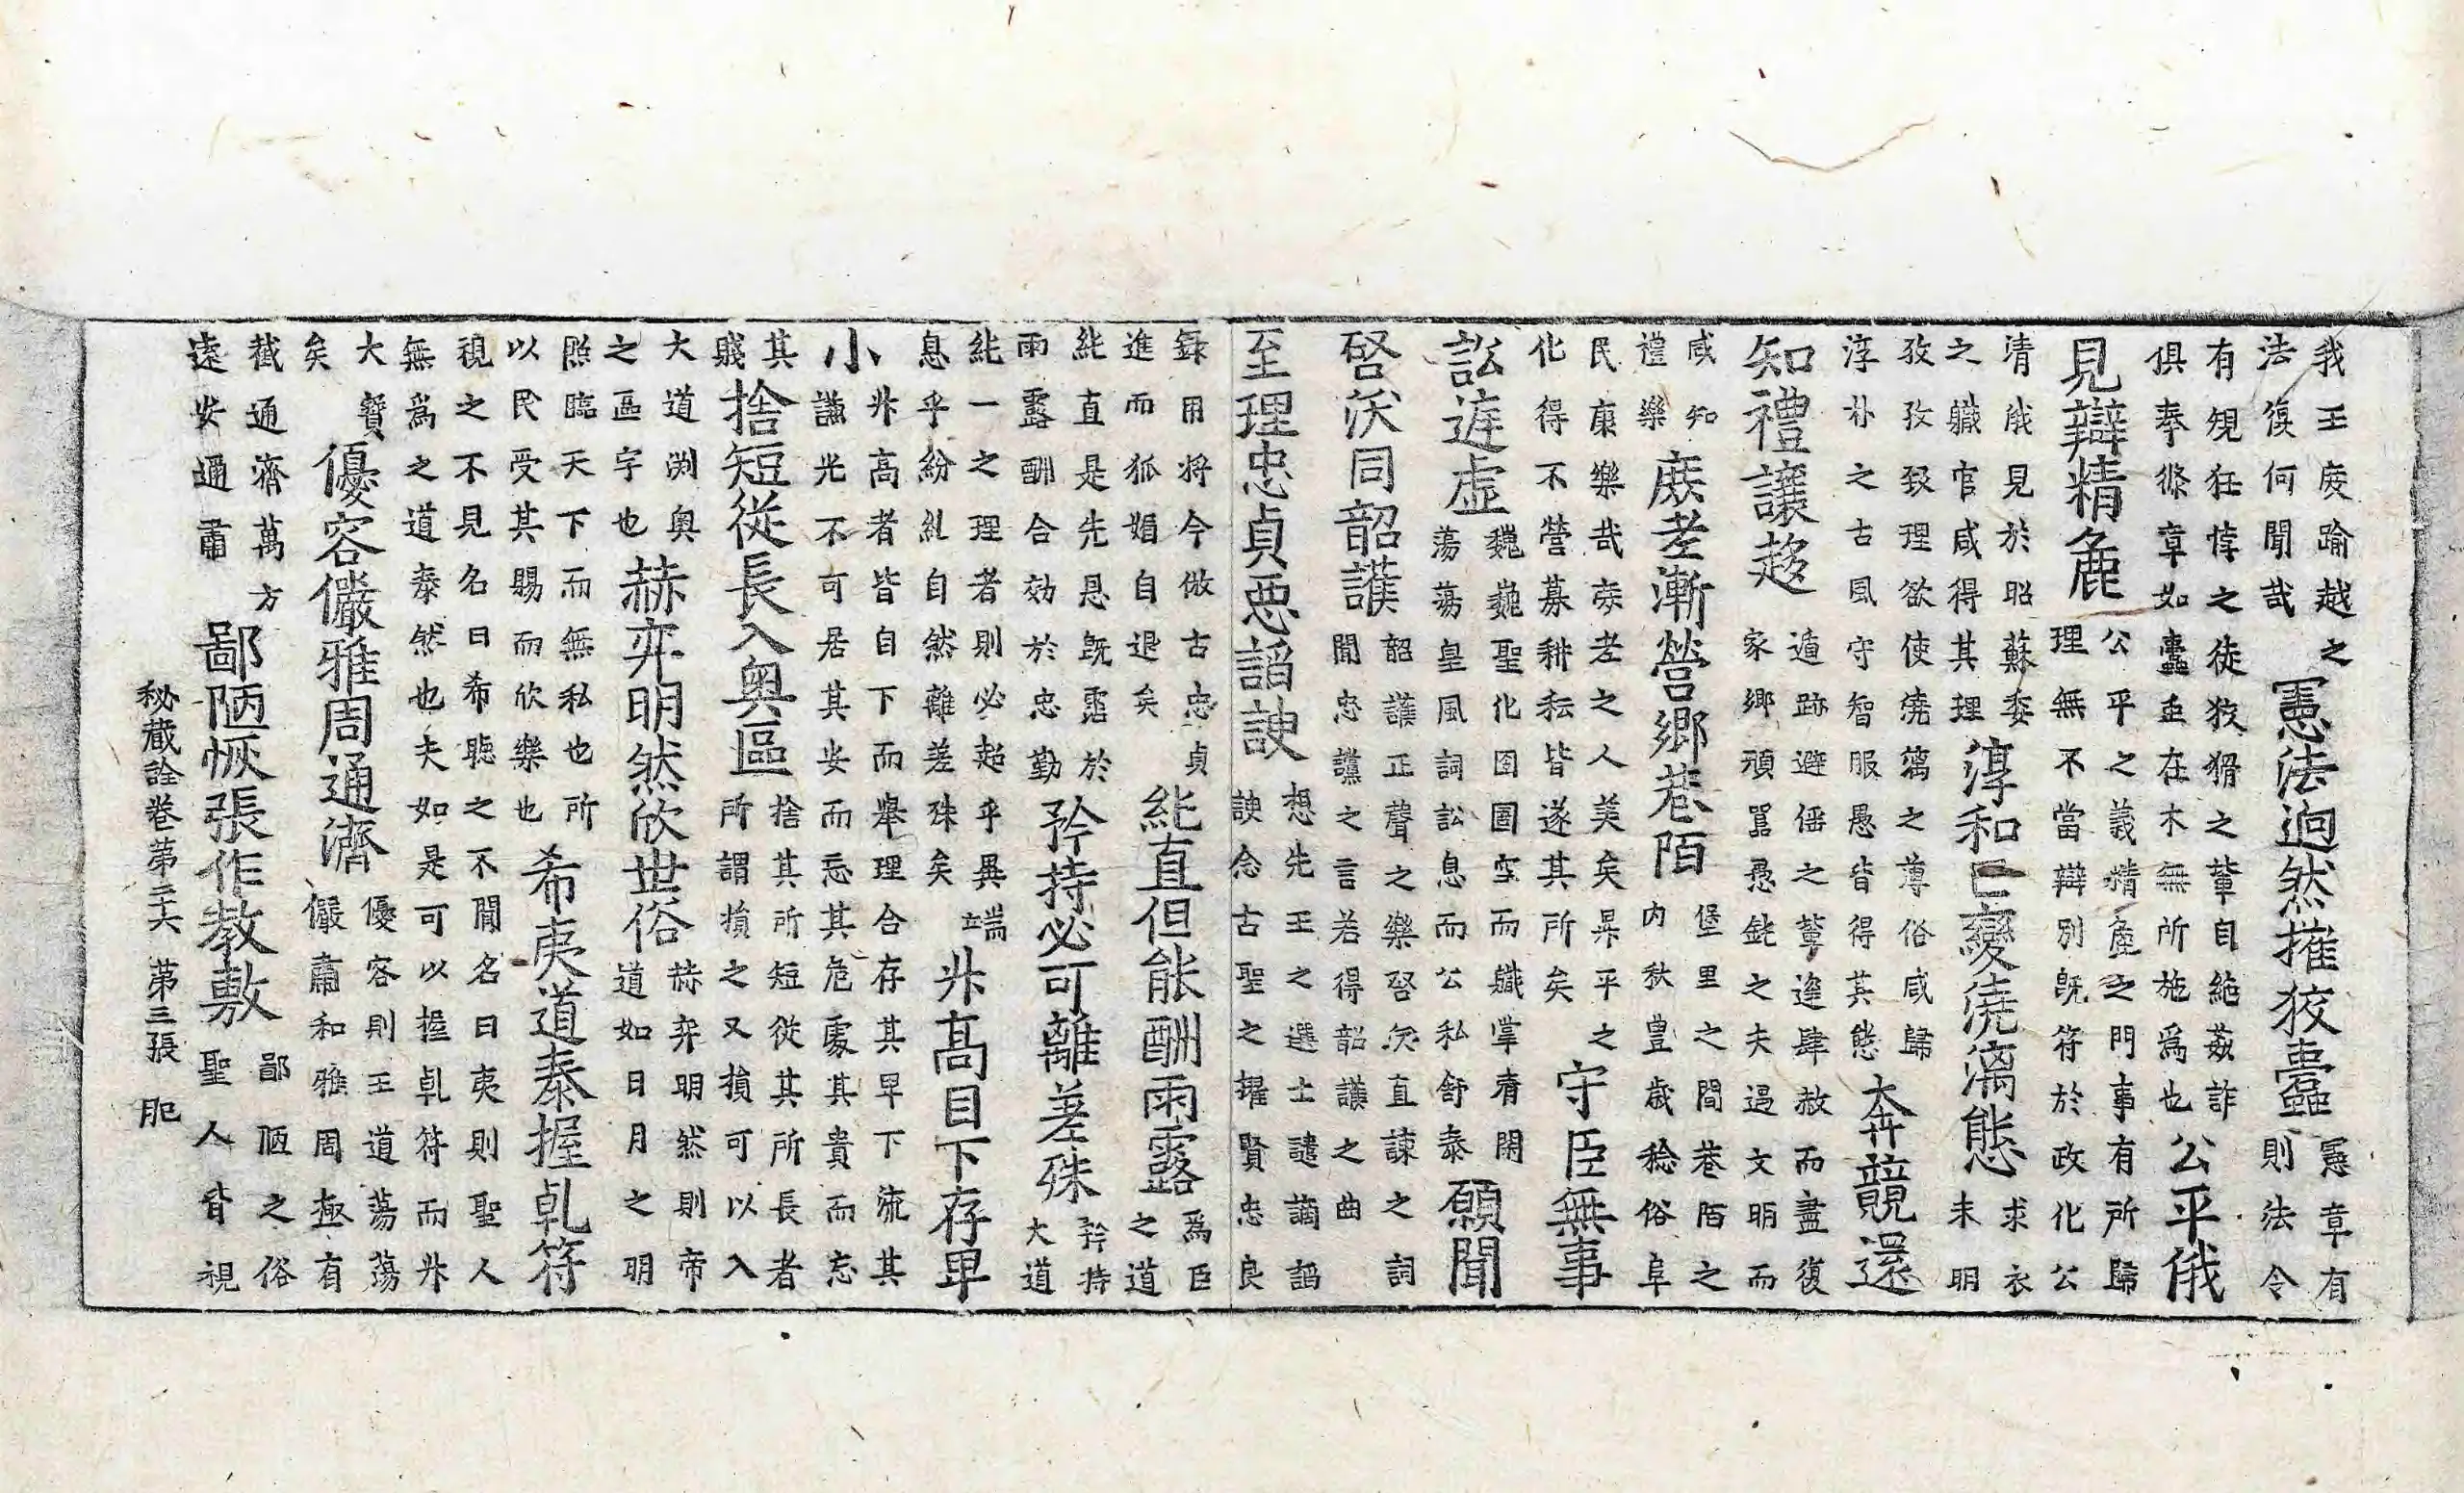 我王庱踰越之
法復何聞哉
憲法逈然摧狡蠹
憲章有
則法令
有䂓狂悖之徒狡猾之輩自絶姦詐
俱奉條章如蠹虫在木無所施爲也
公平俄
見辯精麁
公平之義精麁之門事有所歸
理無不當辯別旣符於政化公
清俄見於昭蘇委
之職官咸得其理
淳和已變澆漓態
求衣
未明
孜孜致理欲使澆漓之薄俗咸歸
淳朴之古風守智服愚皆得其態
奔競還
知禮讓趍
遁跡避徭之輩逆肆赦而盡復
家鄉頑嚚愚鈍之夫逼文明而
咸知
禮樂
庶老漸營鄉巷陌
堡里之間巷陌之
内秋豊歳稔俗阜
民康樂哉庶老之人美矣昇平之
化得不營募耕耘皆遂其所矣
守臣無事
訟遊虛
巍巍聖化囹圄空而職掌有閑
蕩蕩皇風詞訟息而公私舒泰
願聞
啓沃同韶護
韶護正聲之樂啓沃直諫之詞
聞忠讜之言若得韶護之曲
至理忠貞惡諂諛
想先王之選士譴謫諂
諛念古聖之擢賢忠良
録用将今倣古忠貞
進而狐媚自退矣
純直但能酬雨露
爲臣
之道
純直是先恩旣霑於
雨露酬合効於忠勤
矜持必可離差殊
矜持
大道
純一之理者則必起乎異端
息乎紛糺自然離差殊矣
升高目下存卑
小
升高者皆自下而舉理合存其卑下流其
謙光不可居其安而忘其危處其貴而忘
其
賤
捨短從長入奥區
捨其所短從其所長者
所謂損之又損可以入
大道渕奥
之區宇也
赫弈明然欣世俗
赫弈明然則帝
道如日月之明
照臨天下而無私也所
以民受其賜而欣樂也
希夷道泰握乹符
視之不見名曰希聽之不聞名曰夷則聖人
無爲之道泰然也夫如是可以握乹符而升
大寳
矣
優容儼雅周通濟
優容則王道蕩蕩
儼肅和雅周極有
截通濟萬方
遠安通肅
鄙陋恢張作教敷
鄙陋之俗
聖人肯視
秘藏詮卷第二十六 第三張 肥